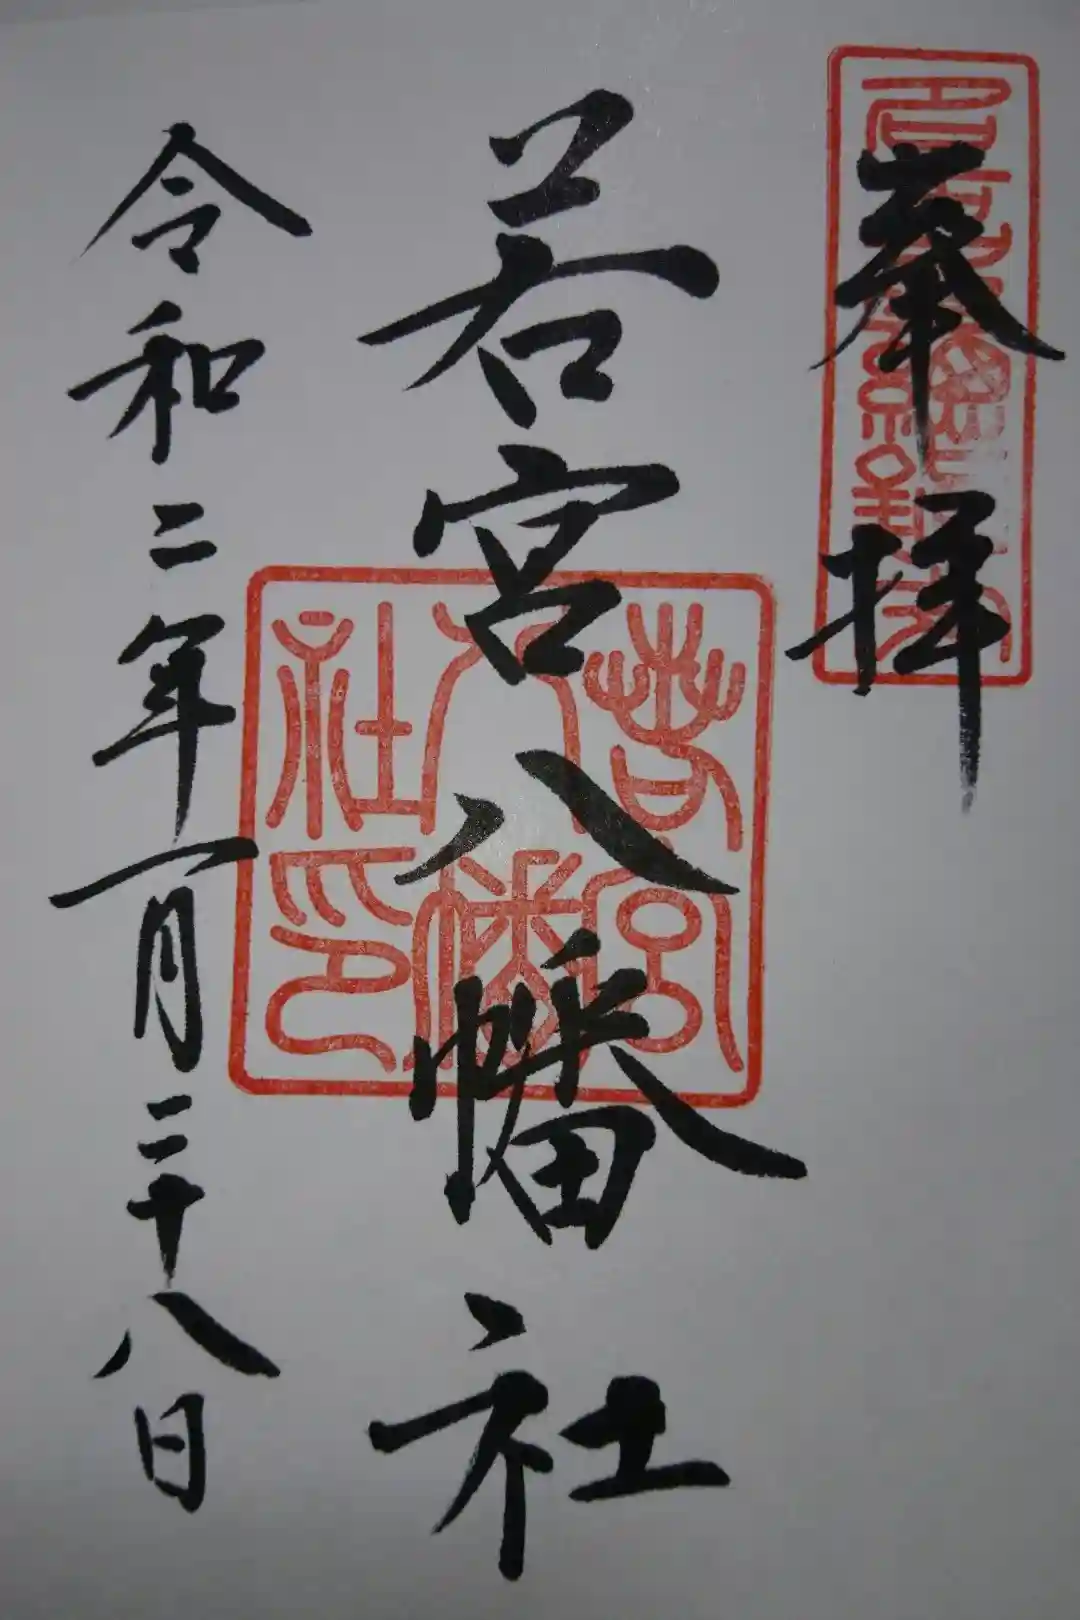 奉拝
若宮八幡社
若宮八幡社印
令和二年一月二十八日